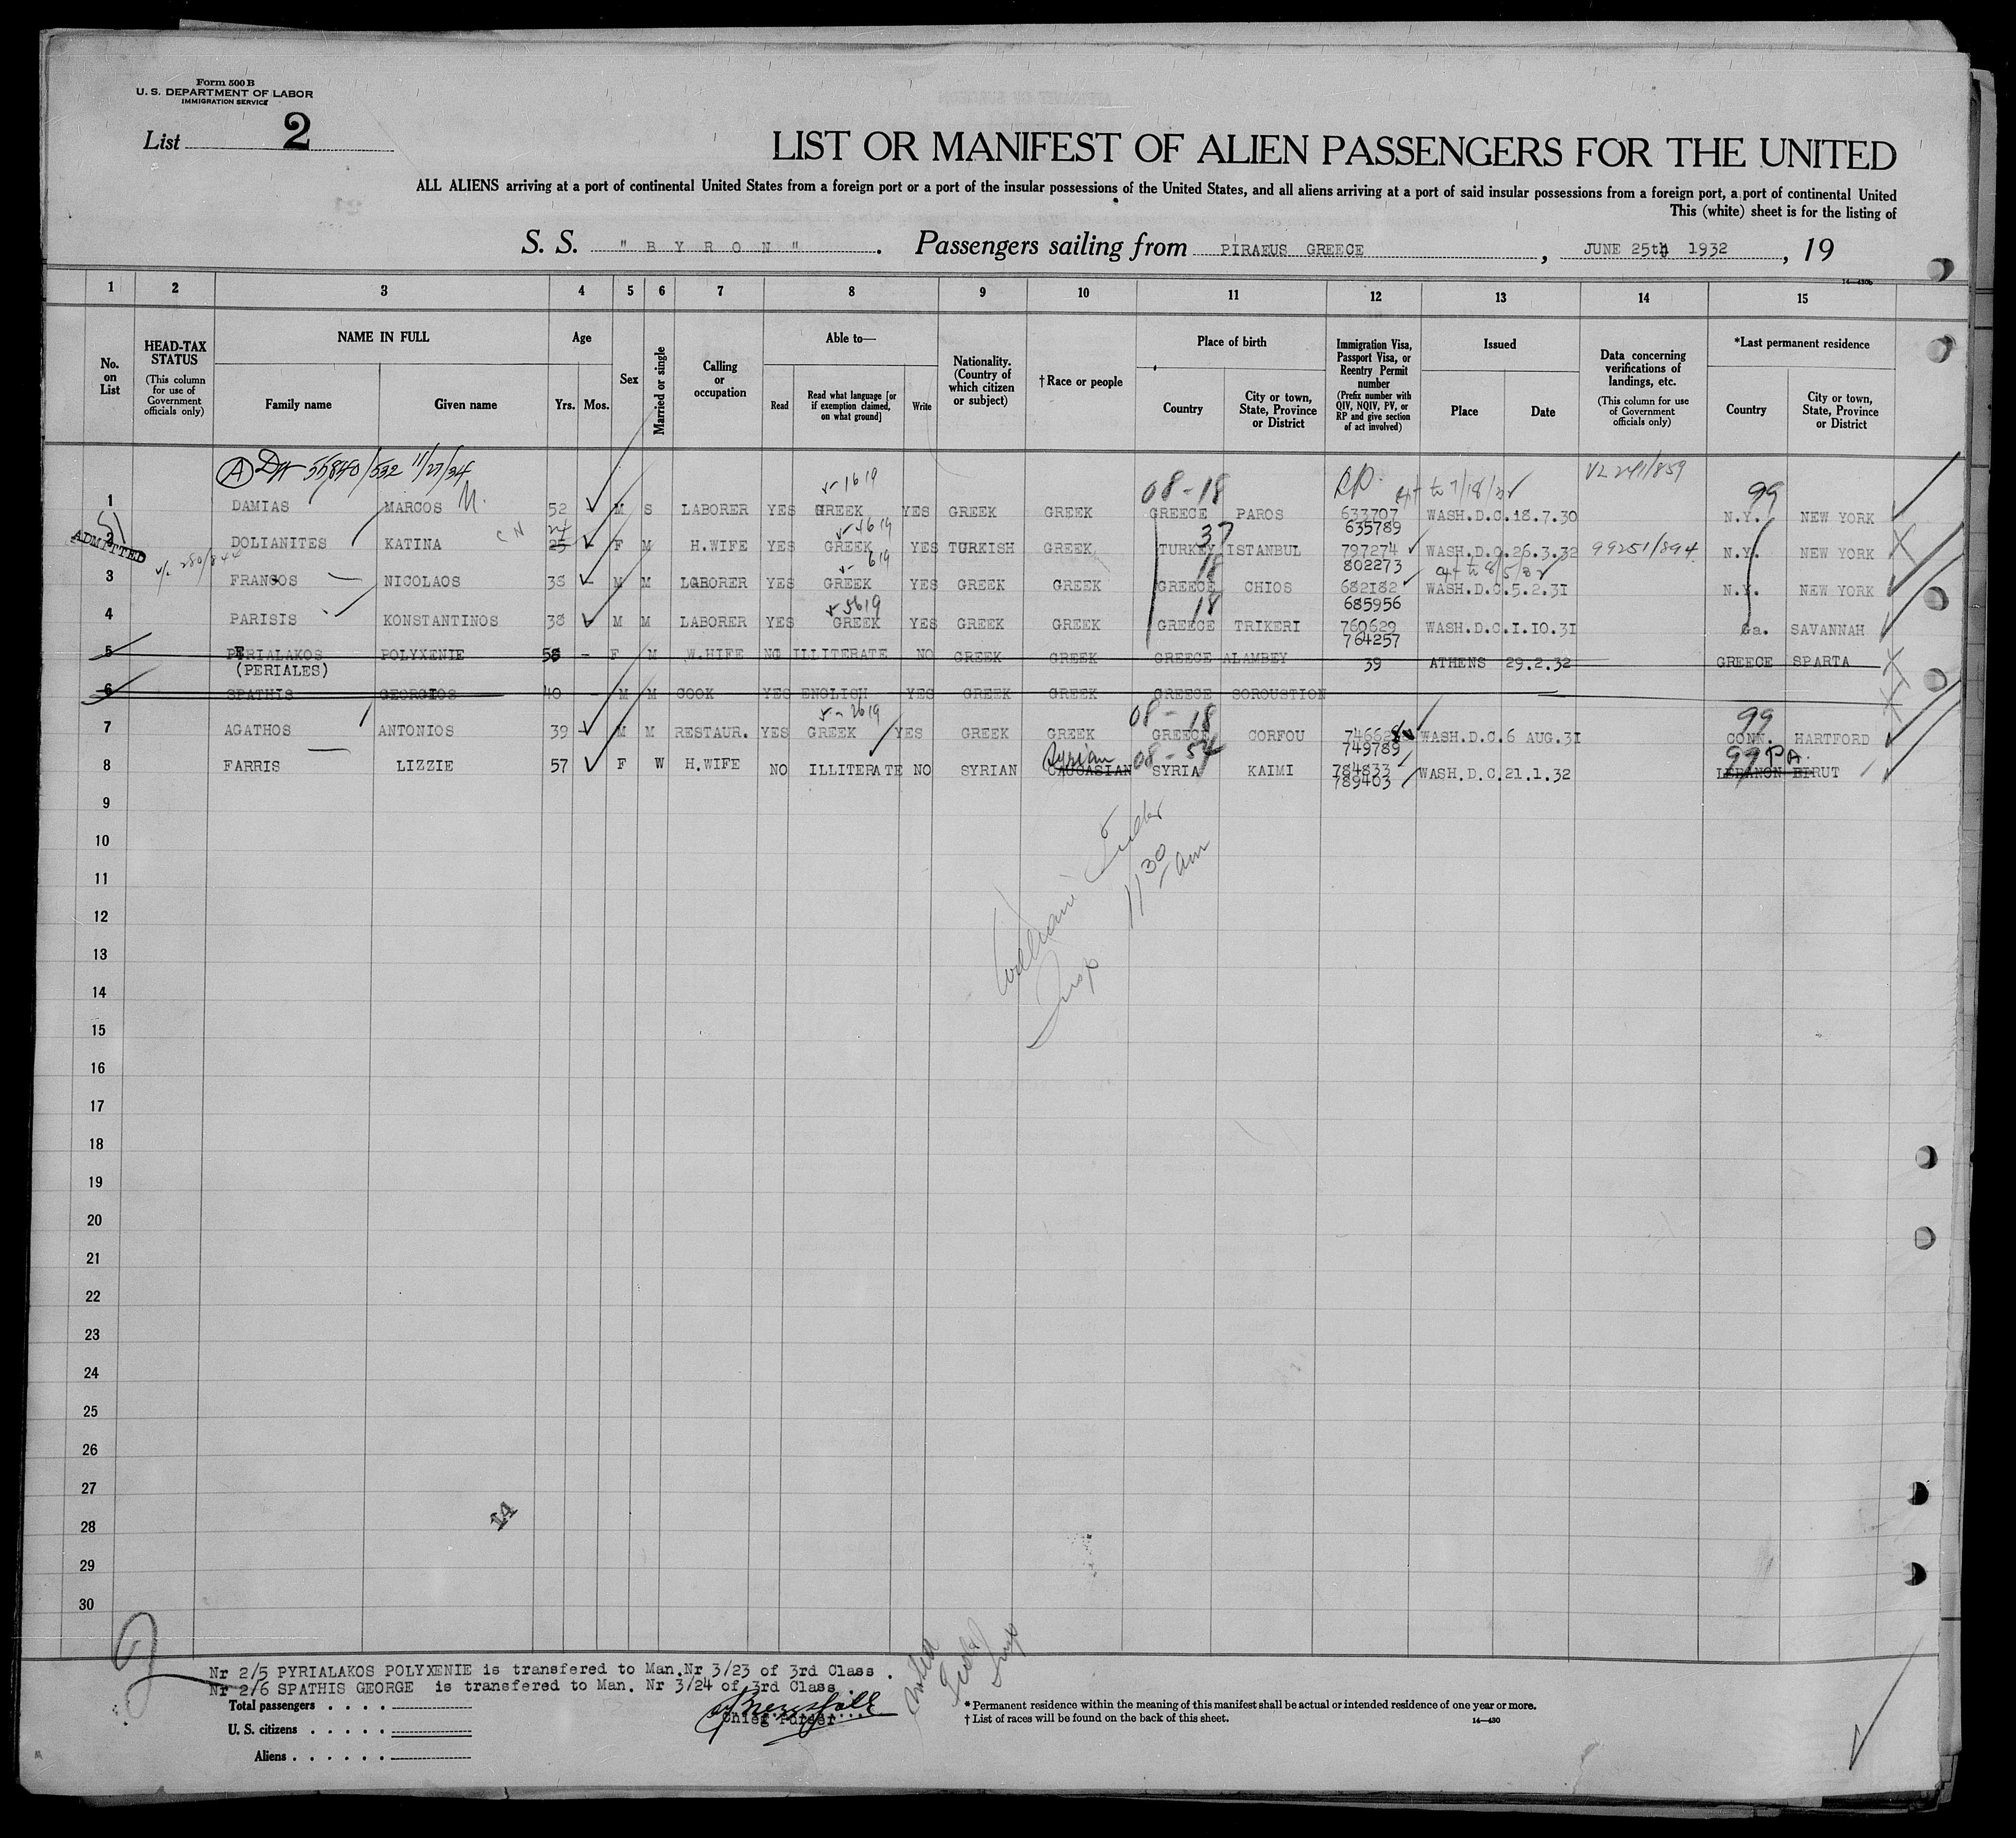 Form 500 B
U. S. DEPARTMENT OF LABOR
IMMIGRATION SERVICE
List 2
LIST OR MANIFEST OF ALIEN PASSENGERS FOR THE UNITED
ALL ALIENS arriving at a port of continental United States from a foreign port or a port of the insular possessions of the United States, and all aliens arriving at a port of said insular possessions from a foreign port, a port of continental United
This (white) sheet is for the listing of
S. S. " B Y R O N " . Passengers sailing from PIRAEUS GREECE , JUNE 25th 1932 , 19
14—430b
1 2 3 4 5 6 7 8 9 10 11 12 13 14 15
No. on List
HEAD-TAX STATUS (This column for use of Government officials only)
NAME IN FULL Family name Given name
Age Yrs. Mos.
Sex
Married or single
Calling or occupation
Able to— Read Read what language [or if exemption claimed, on what ground] Write
Nationality. (Country of which citizen or subject)
† Race or people
Place of birth Country City or town, State, Province or District
Immigration Visa, Passport Visa, or Reentry Permit number (Prefix number with QIV, NQIV, PV, or RP and give section of act involved)
Issued Place Date
Data concerning verifications of landings, etc. (This column for use of Government officials only)
*Last permanent residence Country City or town, State, Province or District
(A) 55840/532 11/27/34 08-18 RP. VL 241/859 99
1 DAMIAS MARCOS M. 52 M S LABORER YES GREEK YES GREEK GREEK GREECE PAROS 633707 WASH.D.C.18.7.30 N.Y. NEW YORK
635789
ADMITTED
24 37
2 DOLIANITES KATINA 25 F M H.WIFE YES GREEK YES TURKISH GREEK TURKEY ISTANBUL 797274 WASH.D.C.26.3.32 99251/894 N.Y. NEW YORK
802273
18
3 FRANGOS NICOLAOS 38 M M LABORER YES GREEK YES GREEK GREEK GREECE CHIOS 682182 WASH.D.C.5.2.31 N.Y. NEW YORK
685956
18
4 PARISIS KONSTANTINOS 38 M M LABORER YES GREEK YES GREEK GREEK GREECE TRIKERI 760629 WASH.D.C.I.IO.3I Ga. SAVANNAH
764257
5 PYRIALAKOS POLYXENIE 58 - F M W.HIFE NO ILLITERATE NO GREEK GREEK GREECE ALAMBEY 39 ATHENS 29.2.32 GREECE SPARTA
(PERIALES)
6 SPATHIS GEORGIOS 40 - M M COOK YES ENGLISH YES GREEK GREEK GREECE SOROUSTION
08-18 99
7 AGATHOS ANTONIOS 39 M M RESTAUR. YES GREEK YES GREEK GREEK GREECE CORFOU 746628 WASH.D.C.6 AUG.3I CONN. HARTFORD
749789
Syrian 08-54 99 PA.
8 FARRIS LIZZIE 57 F W H.WIFE NO ILLITERATE NO SYRIAN CAUCASIAN SYRIA KAIMI 784833 WASH.D.C.21.1.32 LEBANON BIRUT
789403
9
10
11
12
13
14
15
16
17
18
19
20
21
22
23
24
25
26
27
28
29
30
William
Insp 11 30 am
14
Nr 2/5 PYRIALAKOS POLYXENIE is transfered to Man.Nr 3/23 of 3rd Class .
Nr 2/6 SPATHIS GEORGE is transfered to Man. Nr 3/24 of 3rd Class
Total passengers . . . .
U. S. citizens . . . . .
Aliens . . . . . .
Chieg Purser
* Permanent residence within the meaning of this manifest shall be actual or intended residence of one year or more.
† List of races will be found on the back of this sheet.
14—430